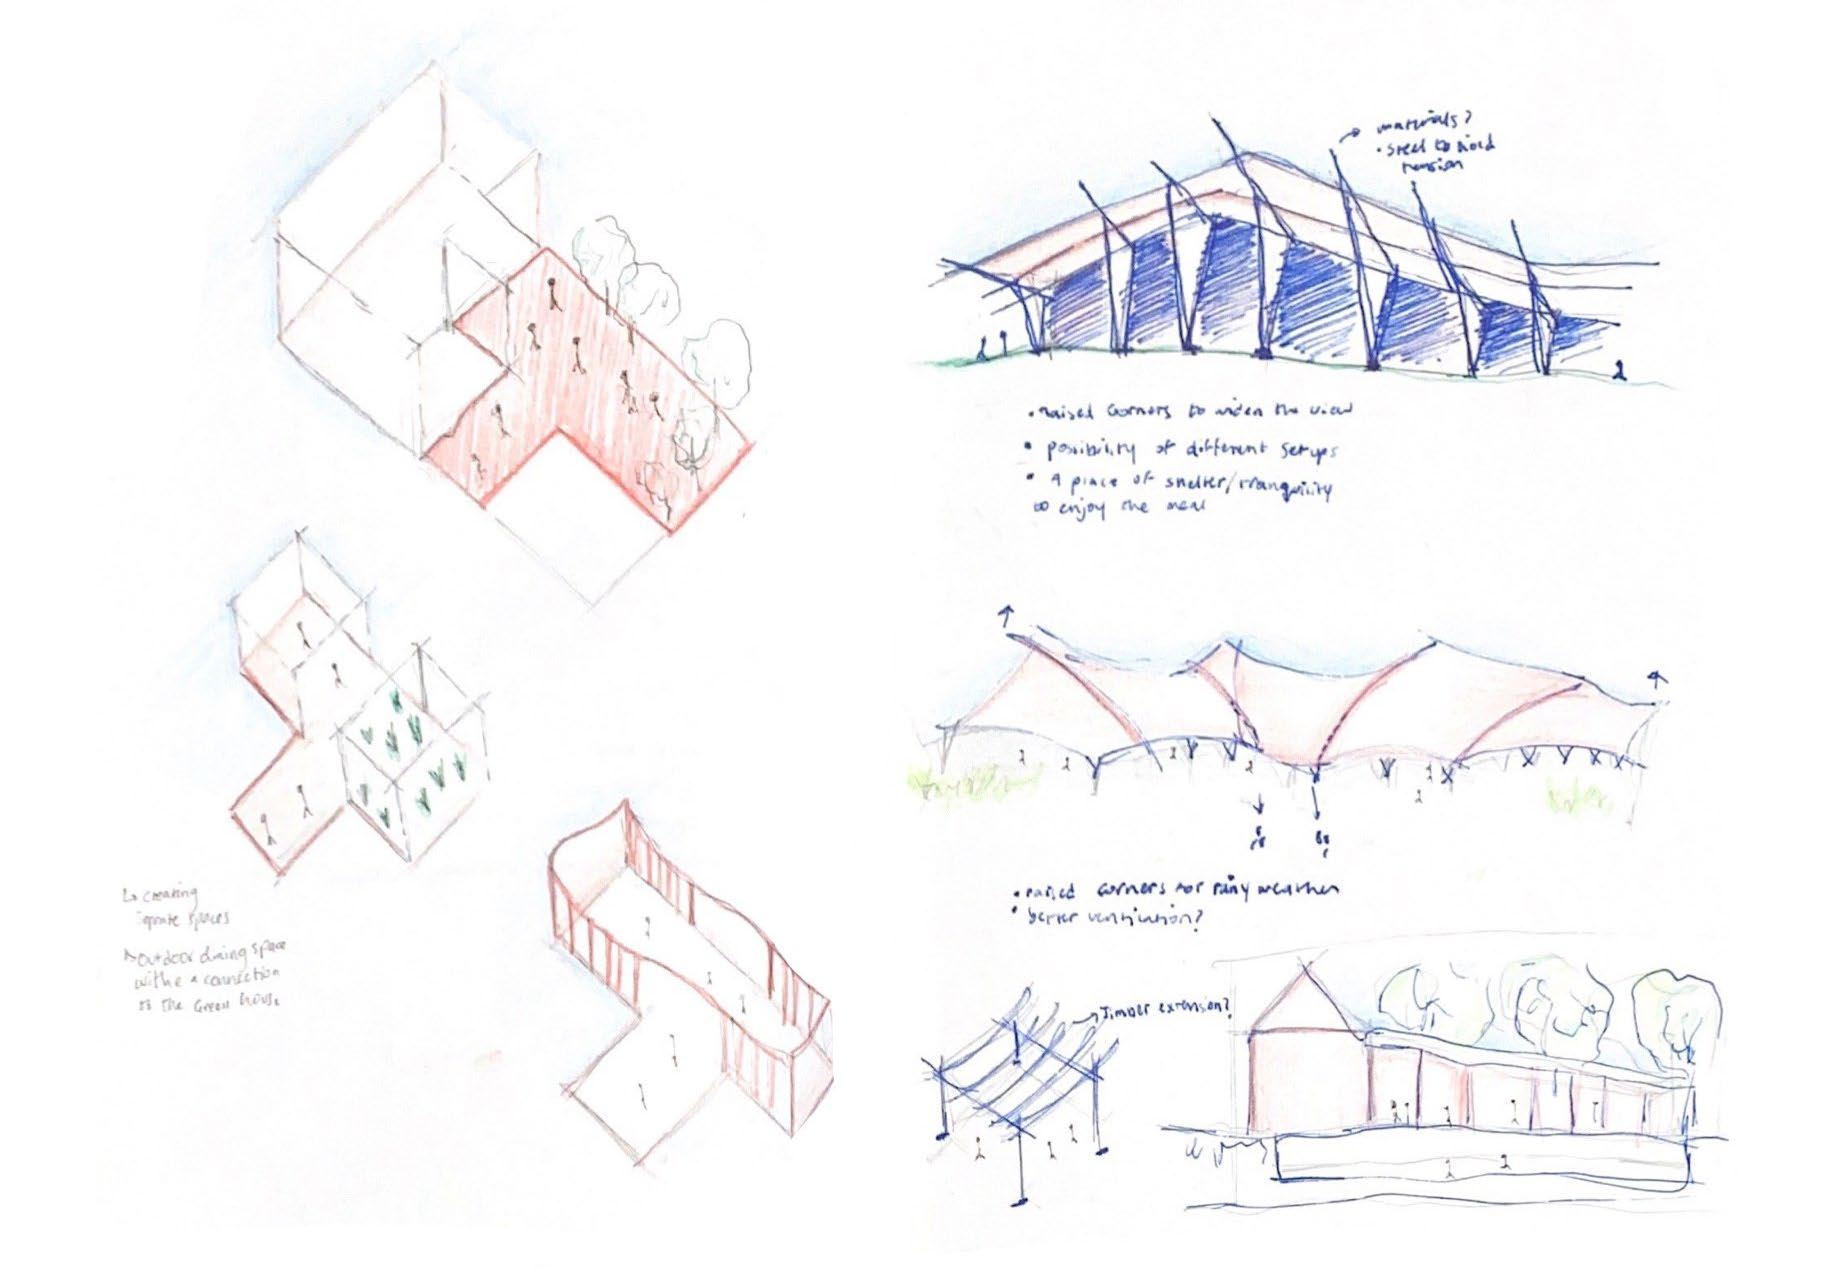 creating
separate spaces
outdoor dining space
withe a connection
to the Green house
materials?
• steel to hold
tension
• raised corners to widen the view
• possibility of different setups
• A place of shelter/tranquility
to enjoy the meal
• raised corners for rainy weather
• better ventilation?
Timber extension?